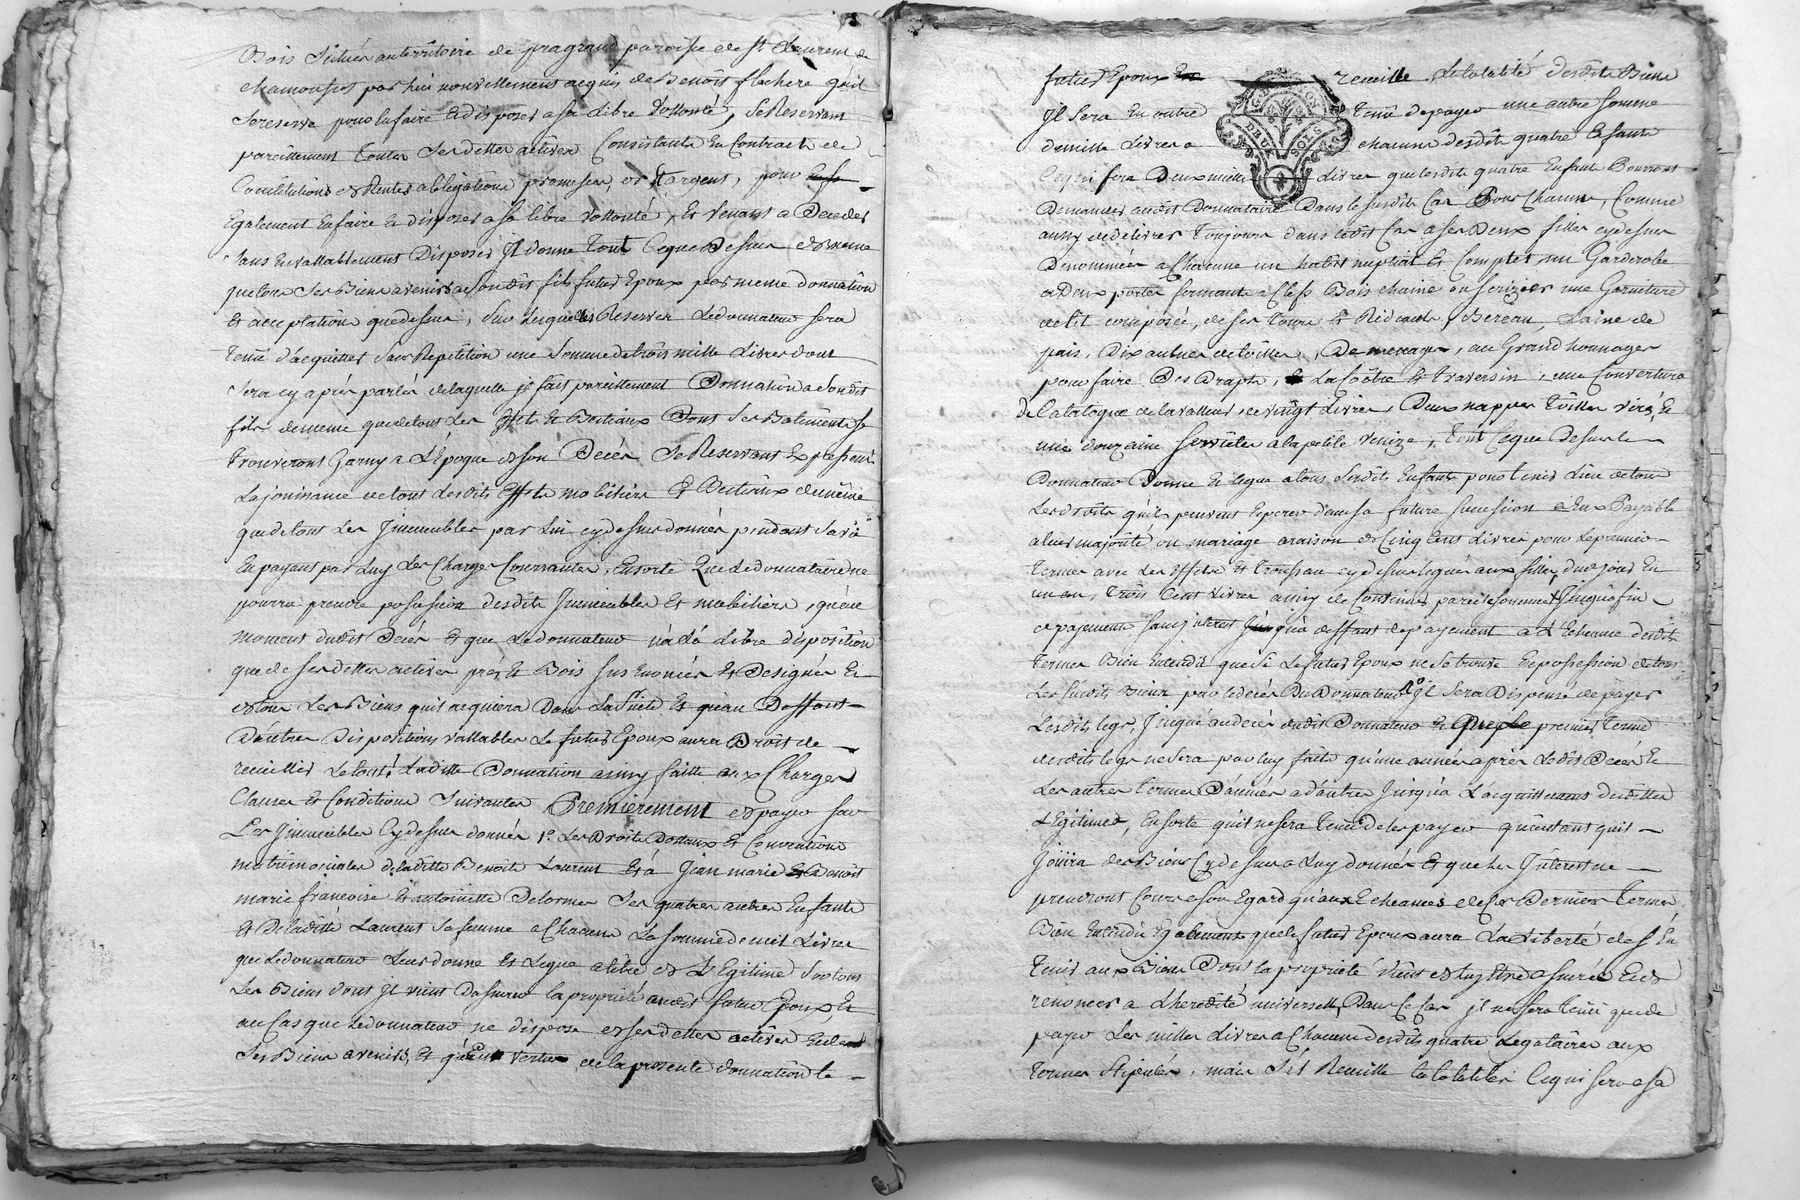 Bois situés au territoire de pragrand paroisse de st Laurent de
chamousset par lui nouvellement acquis de Benoit flachere qu'il
se reserve pour la faire & disposer a sa libre vollonté, se Reservant
pareillement toutes ses dettes actives Consistantes En Contracts de
Constitutions de Rentes obligations promesses, et d'argent, pour
Egalement En faire & disposer a sa libre vollonté, Et venant a Deceder
sans En vallablement Disposer Jl donne tout Ceque Dessus et meme
que tous ses Biens avenirs a son dit fils futur Epoux par meme donnation
Et acceptation que dessus, sur lesquelles Reserves Le donnateur sera
tenu d'acquitter sans Repetition une somme de trois mille Livres dont
sera cy après parlés de laquelle jl fait pareillement Donnation a son dit
fils de meme que de tous Les Effets & Bestiaux Dont ses Batiments se
trouveront Garny a L'Epoque de son Décès Se Reservant Expressem.t
La jouissance de tous lesdits Effets mobiliers & Bestiaux de même
que de tous Les Jmmeubles par Lui cy dessus donnés pendant sa vie
En payant par Luy Les Charges Courrantes, En sorte Que Le donnataire ne
pourra prendre possession desdits Jmmeubles Et mobiliers, qu'au
moment dudit Décès Et que Le donnateur n'a La Libre disposition
que de ses dettes actives prés & Bois sus Enoncés & Designés Et
de tous Les Biens qu'il acquiera Dans La suite Et qu'au Deffaut
D'autres dispositions vallables Le futur Epoux aura Droit de
recueillir Le tout, Laditte Donnation ainsy faitte aux Charges
Clauses Et Conditions suivantes Premièrement de payer sur
Les Jmmeubles Cy dessus donnés 1.° Les Droits Dottaux Et Conventions
matrimoniales de laditte Benoite Laurent Et à Jean marie Et Benoit
marie françoise Et antoinette Delorme Ses quatre autres Enfants
Et De laditte Laurent sa femme a Chacun La somme de mil Livres
que Le donnateur Leur donne Et Legue a titre de Legitime sur tous
Les Biens dont Jl vient D'assurer la propriété audit futur Epoux, Et
au Cas que Le donnateur ne dispose de ses dettes actives Et de
ses Biens avenirs, Et qu'en vertu de la presente donnation le
futur Epoux recueille La totalité desdits Biens
Jl sera En outre tenu de payer une autre somme
de mille Livres a chacun desdits quatre Enfants
Ce qui fera Deux mille Livres que lesdits quatre Enfants Pourront
Demander audit Donnataire Dans le susdit Cas Pour Chacun, Comme
aussy de delivrer toujours dans ledit Cas a ses Deux filles cy dessus
Denommées a Chacune un habit nuptial Et Complet un Garderobe
a Deux portes fermante a Clefs Bois chaine ou serizier une Garniture
de lit composée, de ses tours & Rideaux, Bereau, Laine de
pais, Dix aulnes de toilles, De menage, au Grand hommage
pour faire Des Draps, La Coître Et traversin, une Couverture
de Catalogne de la valleur de vingt Livres, Deux nappes toilles
une douzaine serviettes a la petite venize, tout Ceque Dessus le
Donnateur Donne Et legue a tous sesdits Enfants pour tenir Lieu de tous
Les droits qu'ils peuvent Esperer dans sa future succession & Eux Payable
a leur majorité ou mariage a raison de Cinq Cent Livres pour Le premier
termes avec Les Effets Et trousseau cy dessus legués aux filles, du jour En
un an, trois Cent Livres ainsy de Continuer pareille somme Jusqu'a fin
de payement sans jnterest qu'a deffaut de payement a L'Echeance desdits
termes Bien Entendu que Si Le futur Epoux ne se trouve En possession de tous
Les susdits Biens par le décès Du Donnateur Jl sera Dispensé de payer
Lesdits legs, Jusqu'au decès dudit Donnateur & que Le premier terme
desdits legs ne sera par luy faitte qu'une année après Le dit Décès Et
Les autres termes D'années a d'autres Jusqu'a L'acquittement desdittes
Legitimes, En sorte qu'il ne sera tenu de les payer qu'autant qu'il
Jouira des Biens Cy dessus a Luy donnés Et que les Jnterest ne
prendront Cours a son Egard qu'aux Echeances de Ces Derniers termes
Bien Entendu Egalement que le futur Epoux aura La Liberté de s'En
tenir aux Biens Dont la propriété vient de luy Etre assurée Et de
renoncer a L'heredité universelle, Dans Ce Cas jl ne sera tenu que de
payer Les milles Livres a Chacun desdits quatre Legataires aux
termes Stipulés, mais S'il Recueille la totalité Ce qui sera a sa